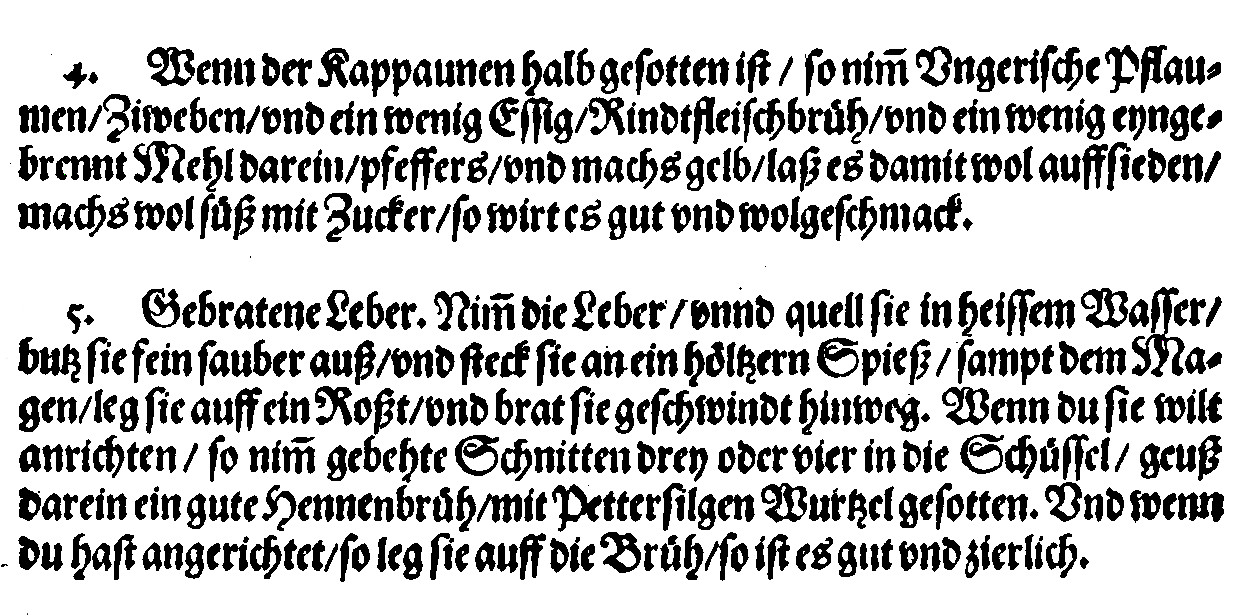 4. Wenn der Kappaunen halb gesotten ist / so nim̃ Vngerische Pflau⸗
men/Ziweben/vnd ein wenig Essig/Rindtfleischbrüh/vnd ein wenig eynge⸗
brennt Mehl darein/pfeffers/vnd machs gelb/laß es damit wol auffsieden/
machs wol süß mit Zucker/so wirt es gut vnd wolgeschmack.
5. Gebratene Leber. Nim̃ die Leber/vnnd quell sie in heissem Wasser/
butz sie fein sauber auß/vnd steck sie an ein höltzern Spieß/sampt dem Ma⸗
gen/leg sie auff ein Roßt/vnd brat sie geschwindt hinweg. Wenn du sie wilt
anrichten / so nim̃ gebehte Schnitten drey oder vier in die Schüssel/ geuß
darein ein gute Hennenbrüh/mit Pettersilgen Wurtzel gesotten. Vnd wenn
du hast angerichtet/so leg sie auff die Brüh/so ist es gut vnd zierlich.